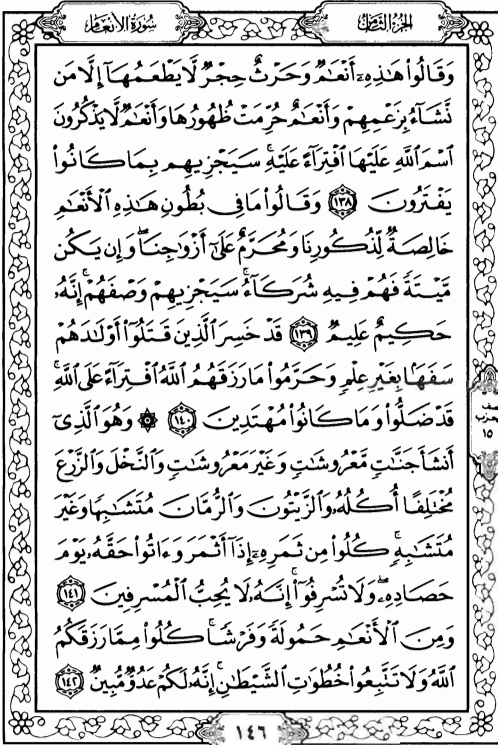 سورة الأنعام
الجزء الثامن
وَقَالُوا۟ هَٰذِهِۦٓ أَنْعَٰمٌ وَحَرْثٌ حِجْرٌ لَّا يَطْعَمُهَآ إِلَّا مَن
نَّشَآءُ بِزَعْمِهِمْ وَأَنْعَٰمٌ حُرِّمَتْ ظُهُورُهَا وَأَنْعَٰمٌ لَّا يَذْكُرُونَ
ٱسْمَ ٱللَّهِ عَلَيْهَا ٱفْتِرَآءً عَلَيْهِ ۚ سَيَجْزِيهِم بِمَا كَانُوا۟
يَفْتَرُونَ ١٣٨ وَقَالُوا۟ مَا فِى بُطُونِ هَٰذِهِ ٱلْأَنْعَٰمِ
خَالِصَةٌ لِّذُكُورِنَا وَمُحَرَّمٌ عَلَىٰٓ أَزْوَٰجِنَا ۖ وَإِن يَكُن
مَّيْتَةً فَهُمْ فِيهِ شُرَكَآءُ ۚ سَيَجْزِيهِمْ وَصْفَهُمْ ۚ إِنَّهُۥ
حَكِيمٌ عَلِيمٌ ١٣٩ قَدْ خَسِرَ ٱلَّذِينَ قَتَلُوٓا۟ أَوْلَٰدَهُمْ
سَفَهًۢا بِغَيْرِ عِلْمٍ وَحَرَّمُوا۟ مَا رَزَقَهُمُ ٱللَّهُ ٱفْتِرَآءً عَلَى ٱللَّهِ ۚ
قَدْ ضَلُّوا۟ وَمَا كَانُوا۟ مُهْتَدِينَ ١٤٠ ۞ وَهُوَ ٱلَّذِىٓ
أَنشَأَ جَنَّٰتٍ مَّعْرُوشَٰتٍ وَغَيْرَ مَعْرُوشَٰتٍ وَٱلنَّخْلَ وَٱلزَّرْعَ
مُخْتَلِفًا أُكُلُهُۥ وَٱلزَّيْتُونَ وَٱلرُّمَّانَ مُتَشَٰبِهًا وَغَيْرَ
مُتَشَٰبِهٍ ۚ كُلُوا۟ مِن ثَمَرِهِۦٓ إِذَآ أَثْمَرَ وَءَاتُوا۟ حَقَّهُۥ يَوْمَ
حَصَادِهِۦ ۖ وَلَا تُسْرِفُوٓا۟ ۚ إِنَّهُۥ لَا يُحِبُّ ٱلْمُسْرِفِينَ ١٤١
وَمِنَ ٱلْأَنْعَٰمِ حَمُولَةً وَفَرْشًا ۚ كُلُوا۟ مِمَّا رَزَقَكُمُ
ٱللَّهُ وَلَا تَتَّبِعُوا۟ خُطُوَٰتِ ٱلشَّيْطَٰنِ ۚ إِنَّهُۥ لَكُمْ عَدُوٌّ مُّبِينٌ ١٤٢
١٥
١٤٦